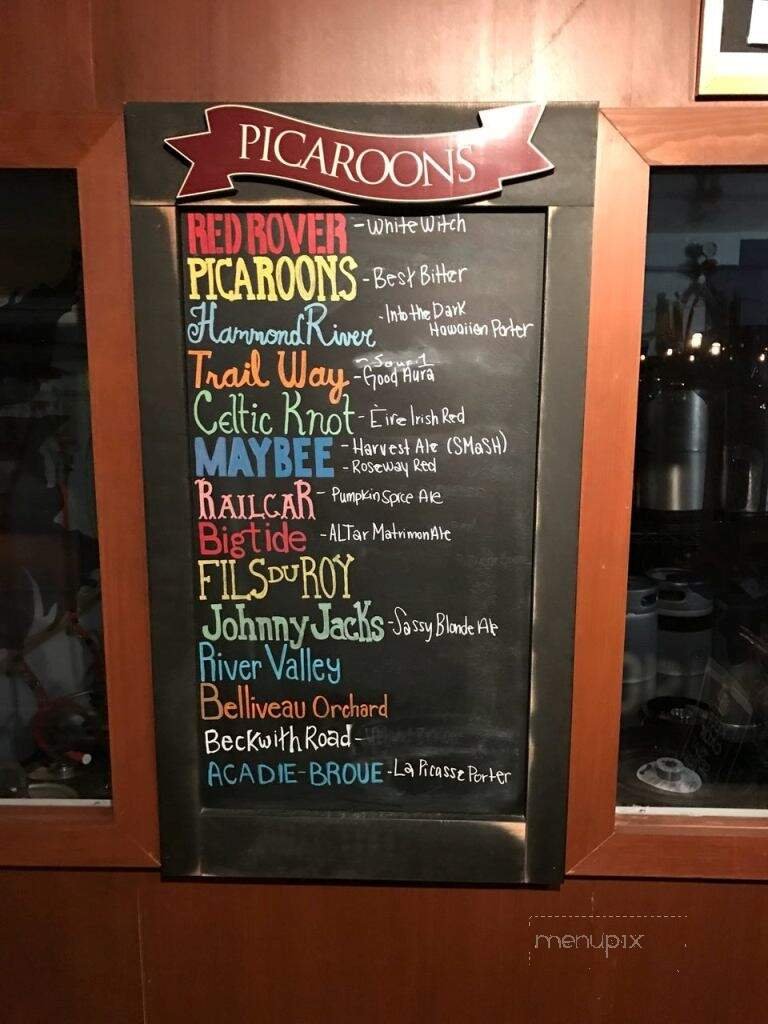 PICAROONS
RED ROVER - White Witch
PICAROONS - Best Bitter
Hammond River - Into the Dark
Hawaiian Porter
Trail Way - Sour 1
- Good Aura
Celtic Knot - Èire Irish Red
MAYBEE - Harvest Ale (SMaSH)
- Roseway Red
RAILCAR - Pumpkin Spice Ale
Bigtide - ALTar MatrimonAle
FILS DU ROY
Johnny Jacks - Sassy Blonde Ale
River Valley
Belliveau Orchard
Beckwith Road -
ACADIE-BROUE - La Picasse Porter
menupix